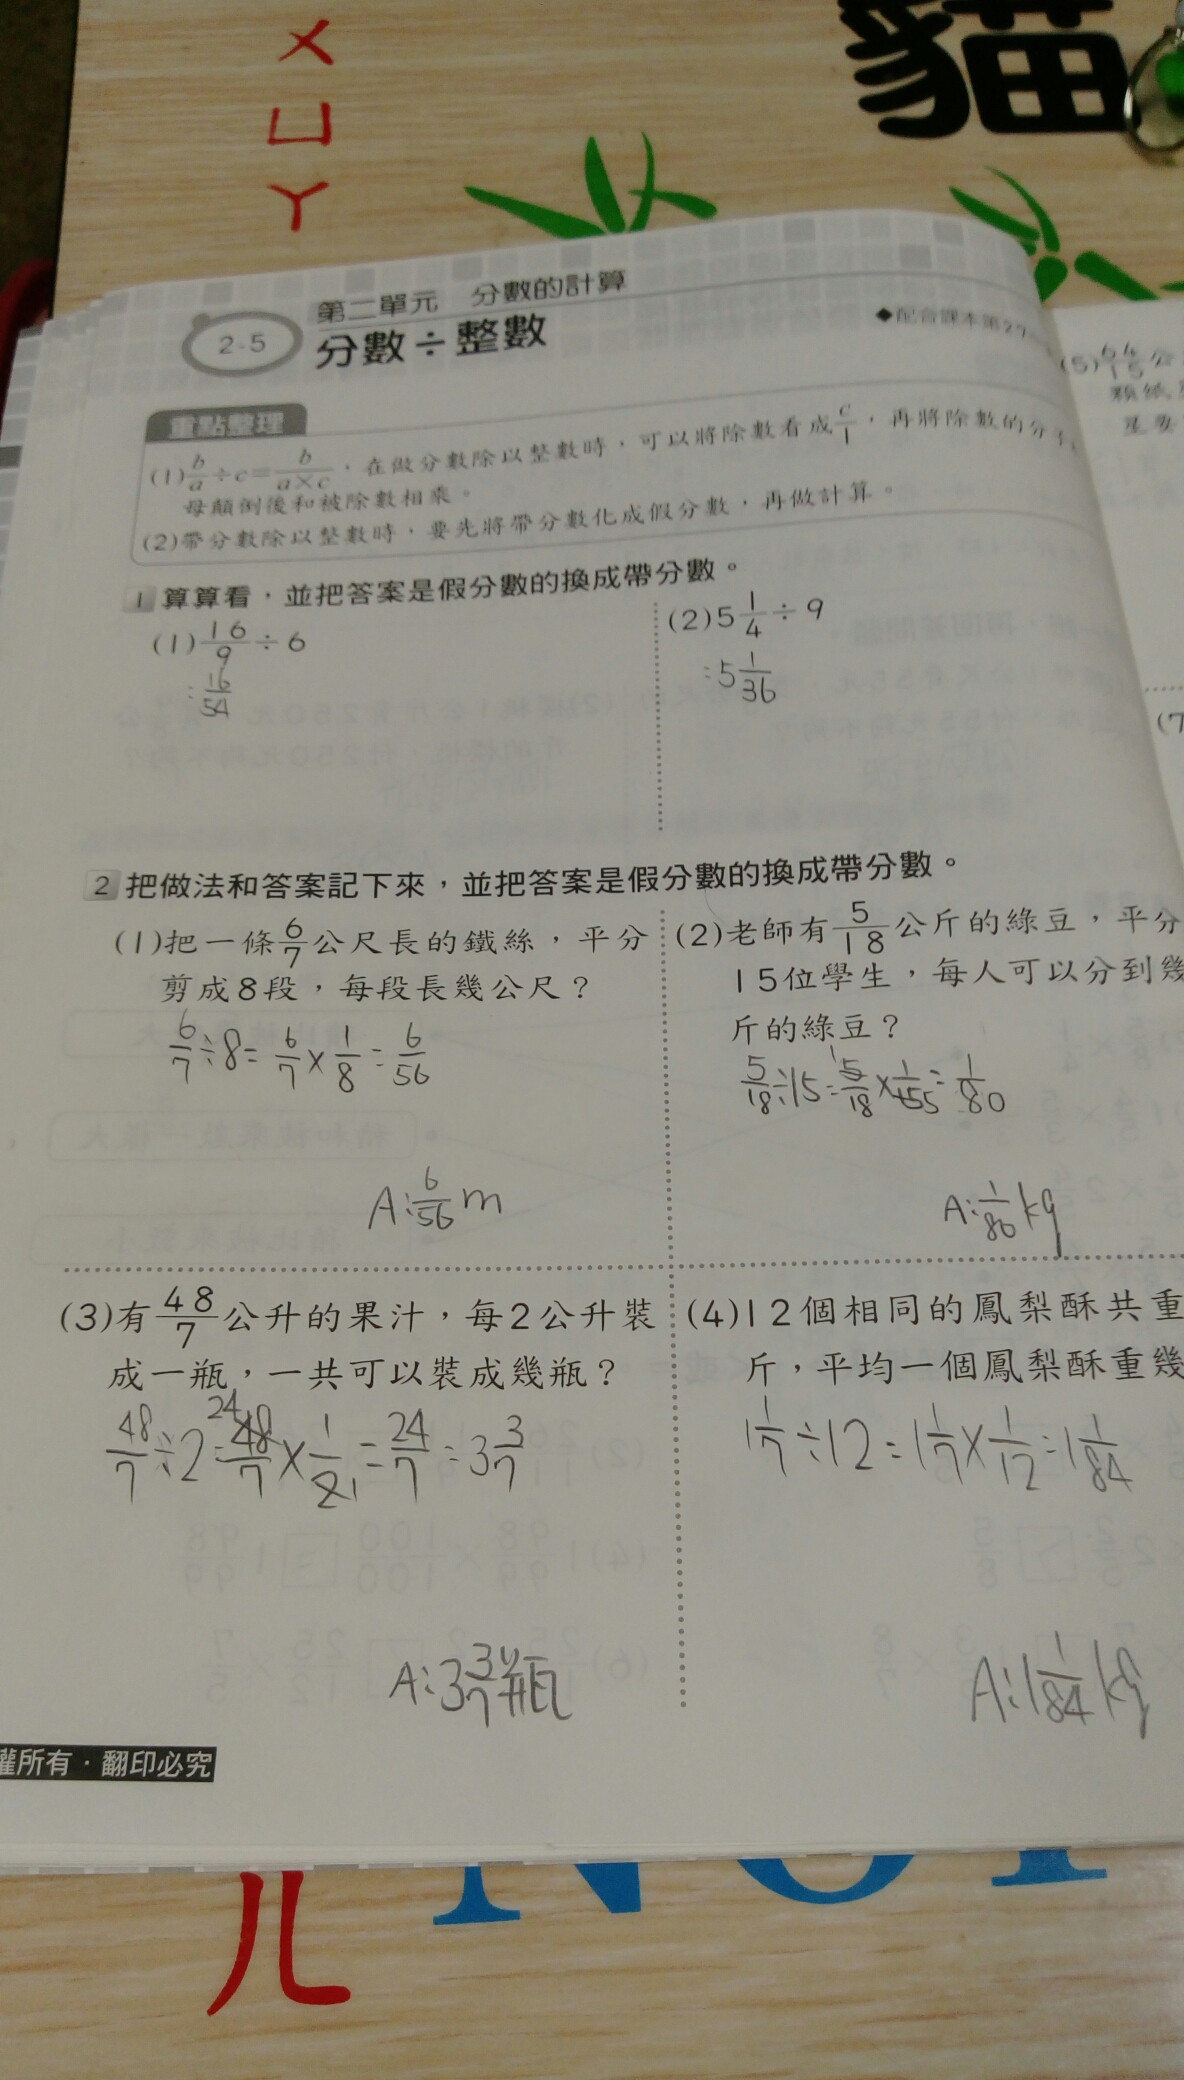 貓
ㄨ
ㄩ
ㄚ
第二單元 分數的計算
2-5 分數÷整數
◆配合課本第29
重點整理
(1) b/a ÷ c = b/(a×c),在做分數除以整數時,可以將除數看成 c/1,再將除數的分子
母顛倒後和被除數相乘。
(2)帶分數除以整數時,要先將帶分數化成假分數,再做計算。
1 算算看,並把答案是假分數的換成帶分數。
(1) 16/9 ÷ 6
= 16/54
(2) 5 1/4 ÷ 9
= 5 1/36
2 把做法和答案記下來,並把答案是假分數的換成帶分數。
(1)把一條 6/7 公尺長的鐵絲,平分
剪成8段,每段長幾公尺?
6/7 ÷ 8 = 6/7 × 1/8 = 6/56
A: 6/56 m
(2)老師有 5/18 公斤的綠豆,平分
15位學生,每人可以分到幾
斤的綠豆?
5/18 ÷ 15 = 5/18 × 1/15 = 1/80
A: 1/80 kg
(3)有 48/7 公升的果汁,每2公升裝
成一瓶,一共可以裝成幾瓶?
48/7 ÷ 2 = 48/7 × 1/2 = 24/7 = 3 3/7
A: 3 3/7 瓶
(4)12個相同的鳳梨酥共重
斤,平均一個鳳梨酥重幾
1 1/7 ÷ 12 = 1 1/7 × 1/12 = 1 1/84
A: 1 1/84 kg
(5) 64/15 公
顆紙
星要
(7
權所有・翻印必究
ㄦ